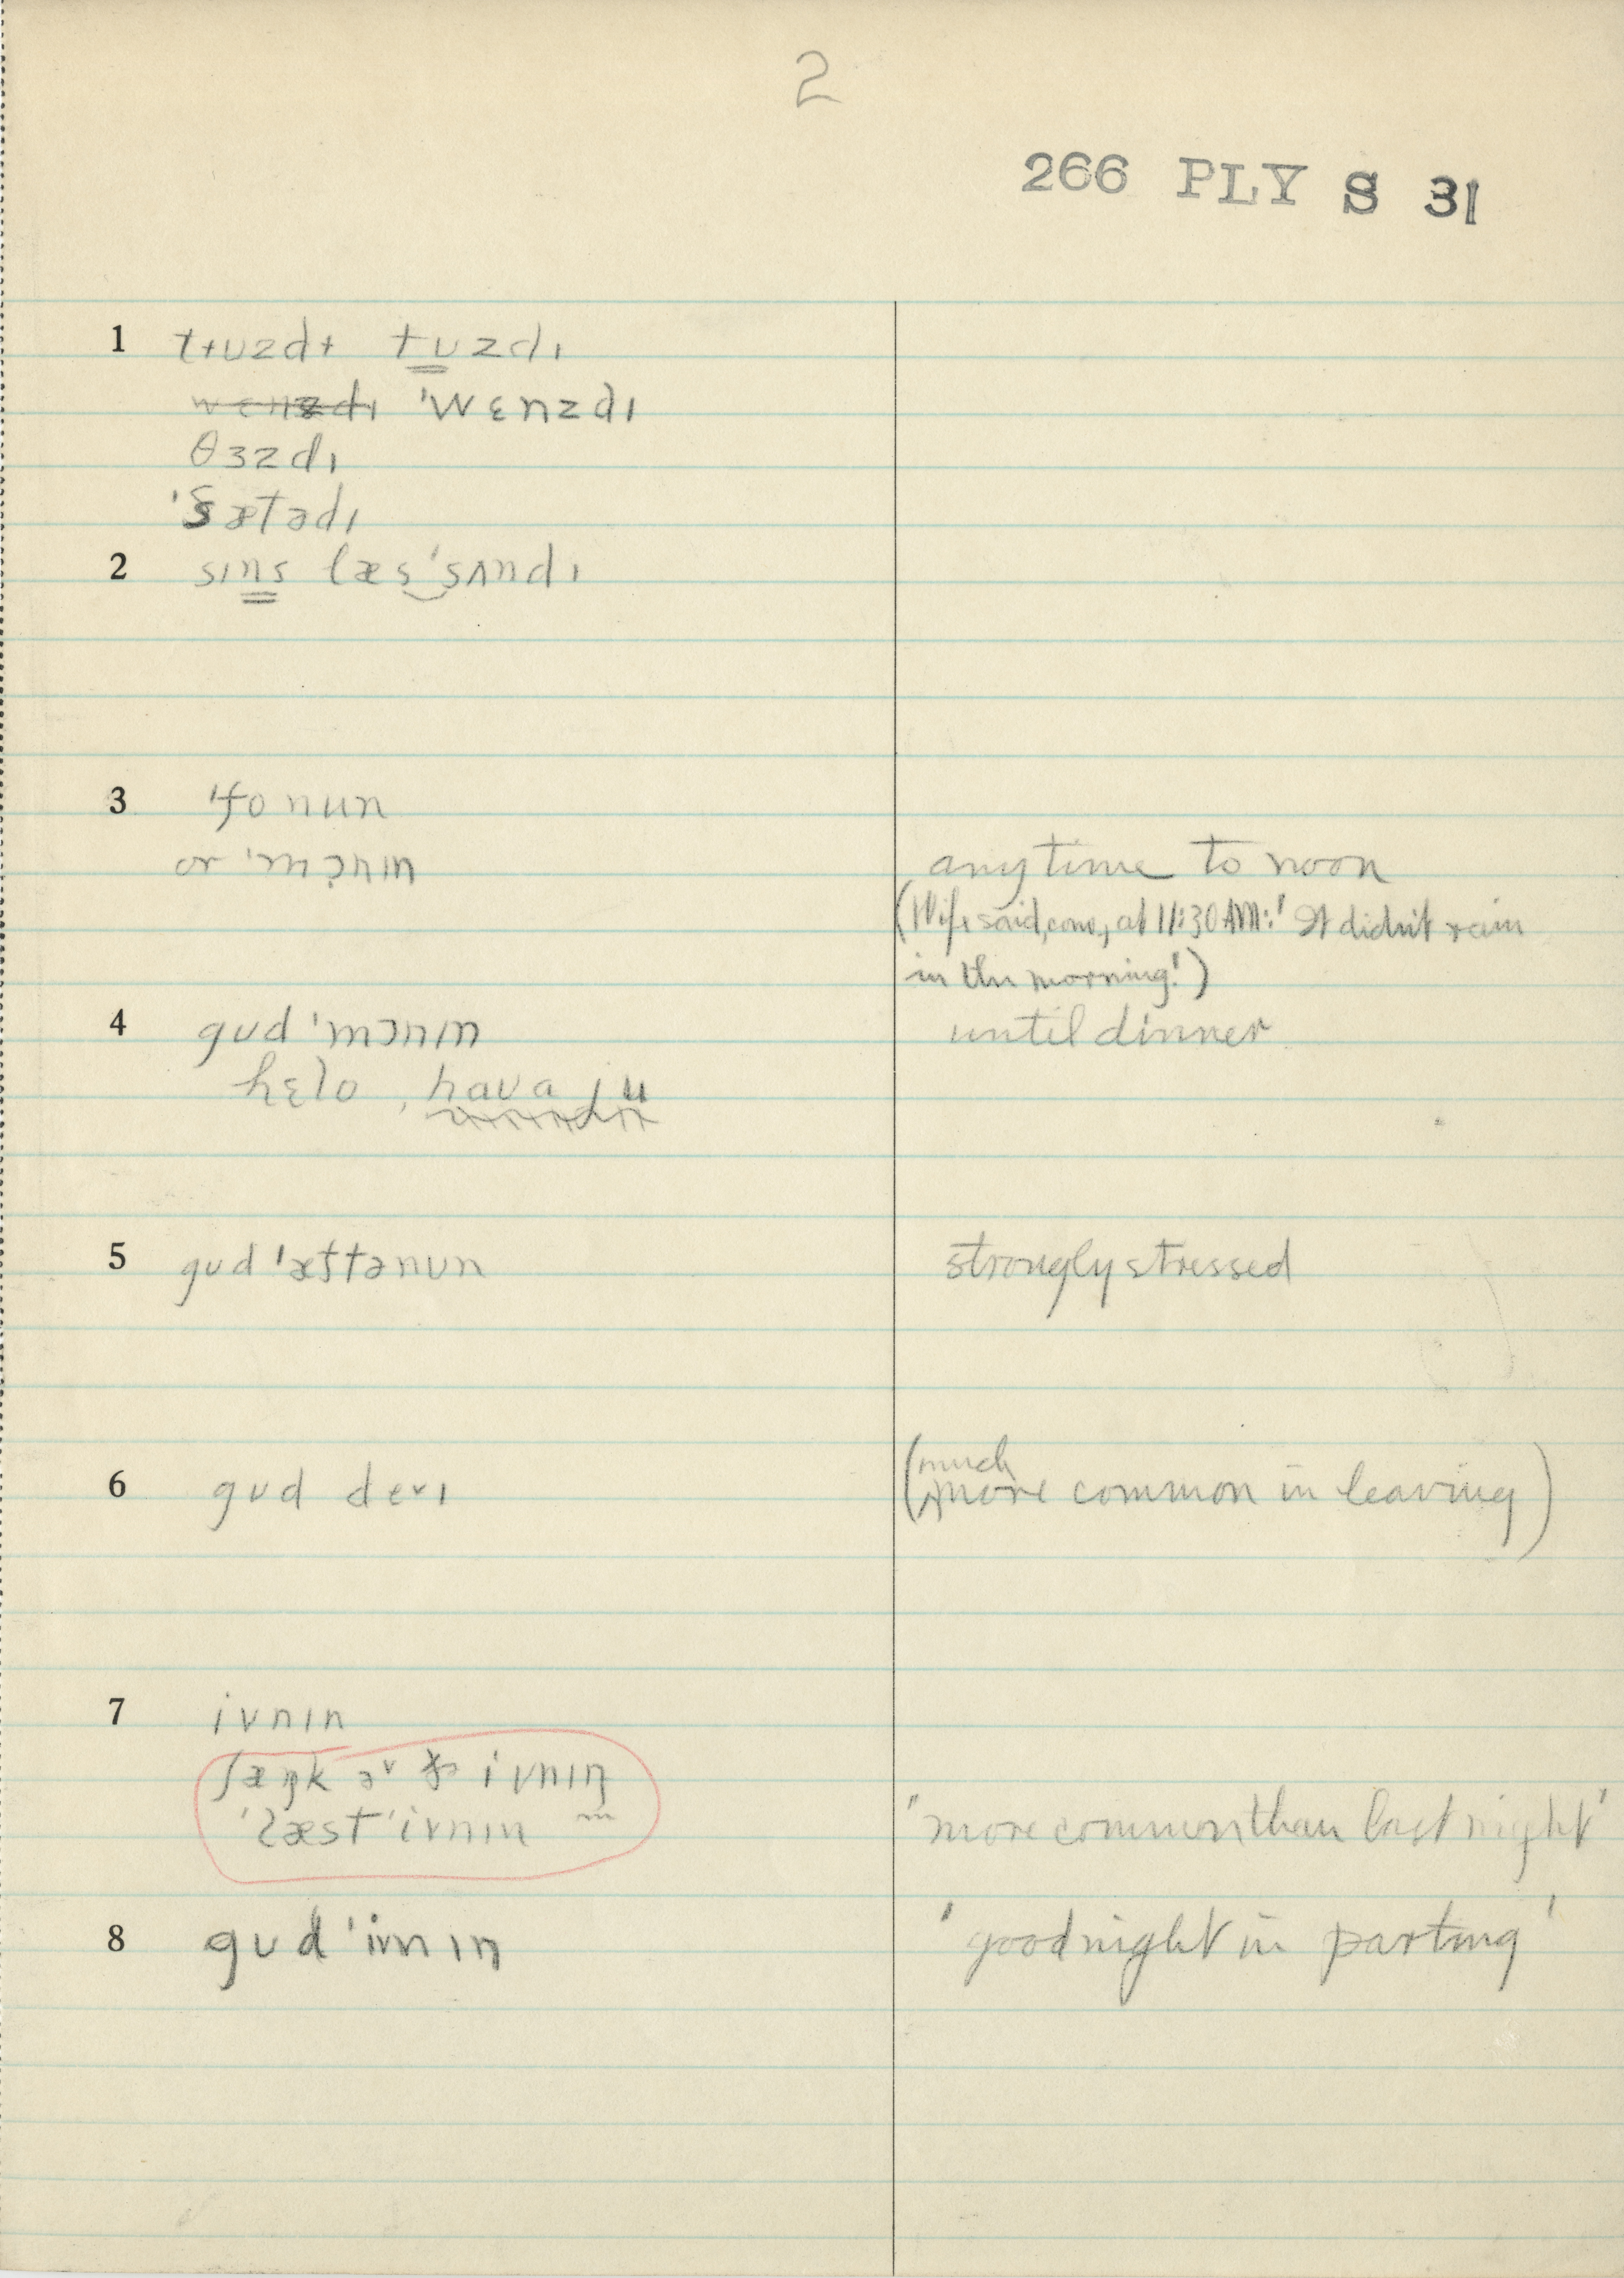 2
266 PLY S 31
1 tɨuzdɨ tuzdɪ
wɛnzdɪ 'wɛnzdɪ
θɜzdɪ
'sætədɪ
2 sɪns læs'sʌndɪ
3 'fonun
or 'mɔnɪn anytime to noon
(Wife said, conv., at 11:30 AM: 'It didn't rain
in the morning!')
4 gud 'mɔnɪn until dinner
hɛlo, havaju
5 gud 'æftənun strongly stressed
6 gud deɪ (much more common in leaving)
7 ivnɪn
ivnɪŋ
'læst 'ivnɪn 'more common than last night'
8 gud 'ivnɪŋ 'good night in parting'